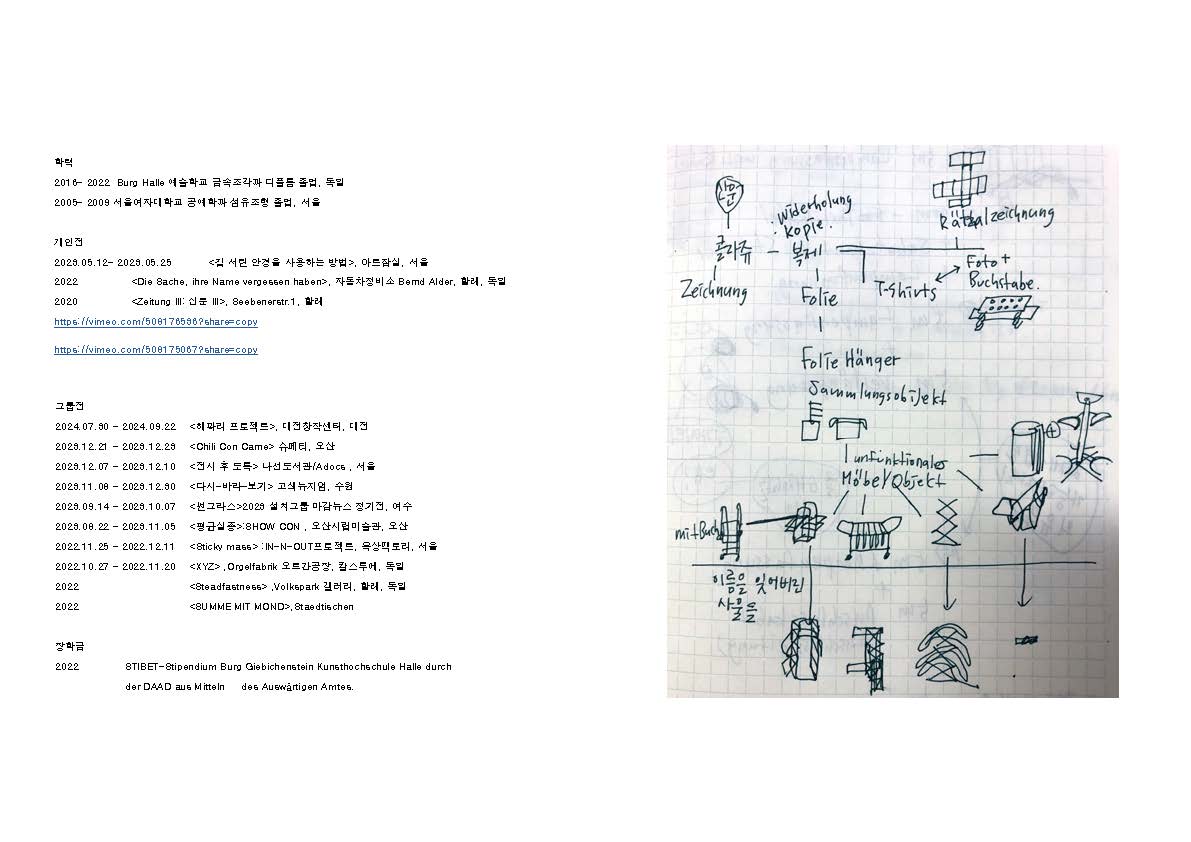 학력
2016- 2022 Burg Halle 예술학교 금속조각과 디플롬 졸업, 독일
2005- 2009 서울여자대학교 공예학과 섬유조형 졸업, 서울
개인전
2023.05.12- 2023.05.25 <김 서린 안경을 사용하는 방법>, 아트잠실, 서울
2022 <Die Sache, ihre Name vergessen haben>, 자동차정비소 Bernd Alder, 할레, 독일
2020 <Zeitung III: 신문 III>, Seebenerstr.1, 할레
https://vimeo.com/508175067?share=copy
그룹전
2024.07.30 - 2024.09.22 <해파리 프로젝트>, 대전창작센터, 대전
2023.12.21 - 2023.12.29 <Chili Con Carne> 슈페티, 오산
2023.12.07 - 2023.12.10 <전시 후 도록> 나선도서관/Adocs , 서울
2023.11.08 - 2023.12.30 <다시-바라-보기> 고색뉴지엄, 수원
2023.09.14 - 2023.10.07 <썬그라스>2023 설치그룹 마감뉴스 정기전, 여수
2023.08.22 - 2023.11.05 <평균실종>:SHOW CON , 오산시립미술관, 오산
2022.11.25 - 2022.12.11 <Sticky mass> :IN-N-OUT프로젝트, 옥상팩토리, 서울
2022.10.27 - 2022.11.20 <XYZ> , Orgelfabrik 오르간공장, 칼스루에, 독일
2022 <Steadfastness> ,Volkspark 갤러리, 할레, 독일
2022 <SUMME MIT MOND>, Staedtischen
장학금
2022 STIBET-Stipendium Burg Giebichenstein Kunsthochschule Halle durch
der DAAD aus Mitteln des Auswärtigen Amtes.
신문
· Widerholung
· Kopie.
콜라쥬 - 복제
Rätzalzeichnung
Zeichnung
Folie
T-shirts
Foto +
Buchstabe.
Folie Hänger
Sammlungsobjekt
unfunktionales
Möbel/Objekt
mit Buch
이름을 잊어버린
사물들